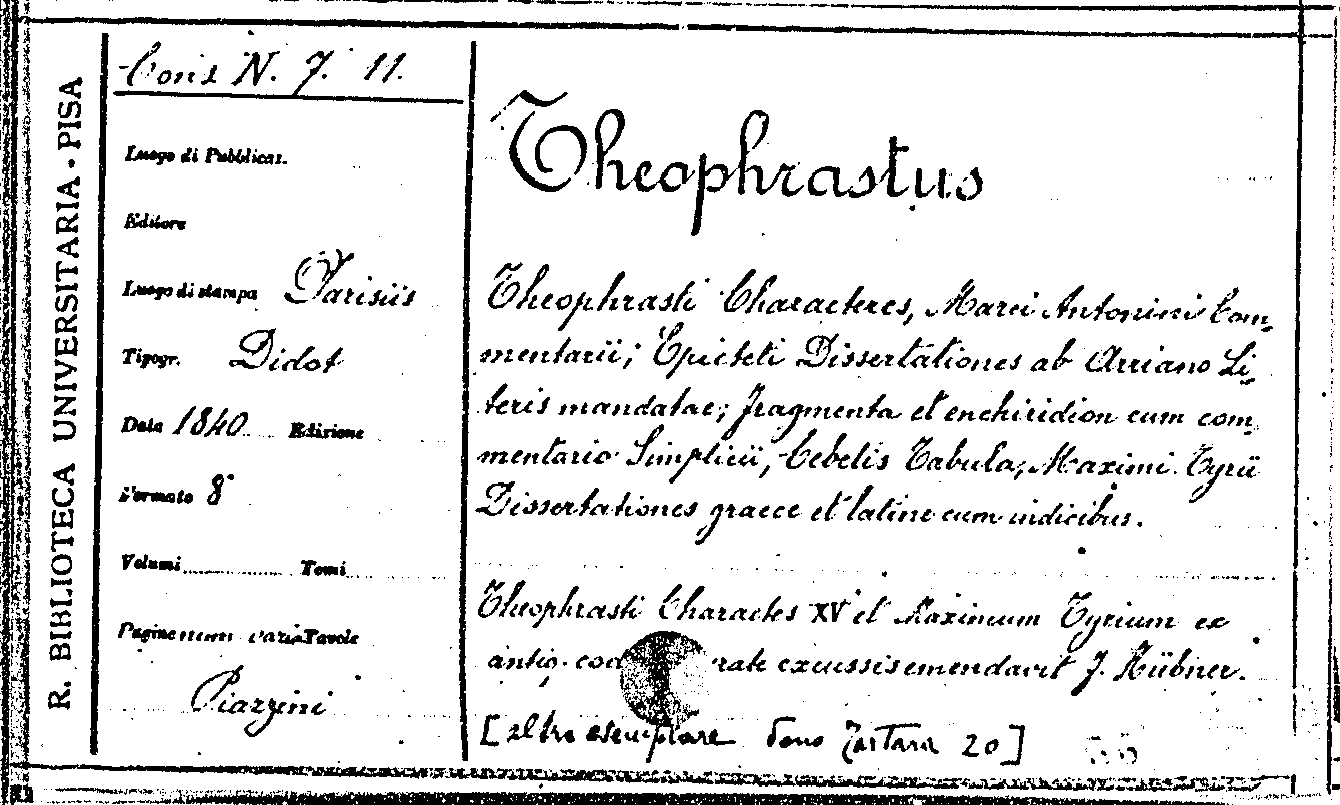 R. BIBLIOTECA UNIVERSITARIA - PISA
N. 7. 11.
Luogo di Pubblicaz.
Editore
Luogo di stampa Parisiis
Tipogr. Didot
Data 1840 Edizione
Formato 8°
Volumi Tomi
Pagine num. varia Tavole
Piazzini
Theophrastus
Theophrasti Characteres, Marci Antonini Com-
mentarii; Epicteti Dissertationes ab Arriano Li-
teris mandatae; fragmenta et enchiridion cum com-
mentario Simplicii, Cebetis Tabula, Maximi Tyrii
Dissertationes graece et latine cum indicibus.
Theophrasti Charactes XV et Maximum Tyrium ex
antiq. excussis emendavit J. Hübner.
[altro esemplare dono 20]